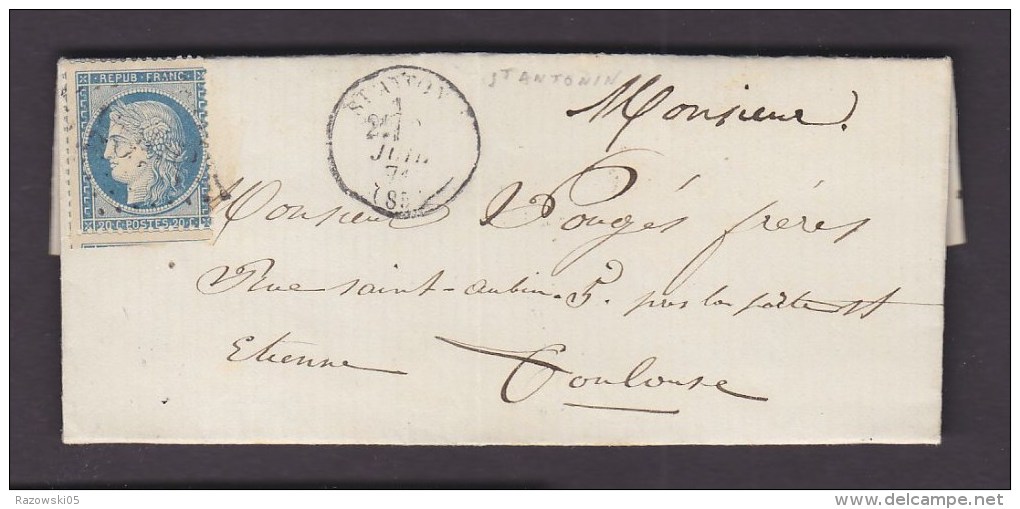 REPUB. FRANC.
20 C. POSTES 20 C.
ST ANTON
JUIL
71
ST ANTONIN
Monsieur
Monsieur Pougés fréres
Rue saint-aubin. 5. prés la porte St
Etienne Toulouse
Razowski05
www.delcampe.net